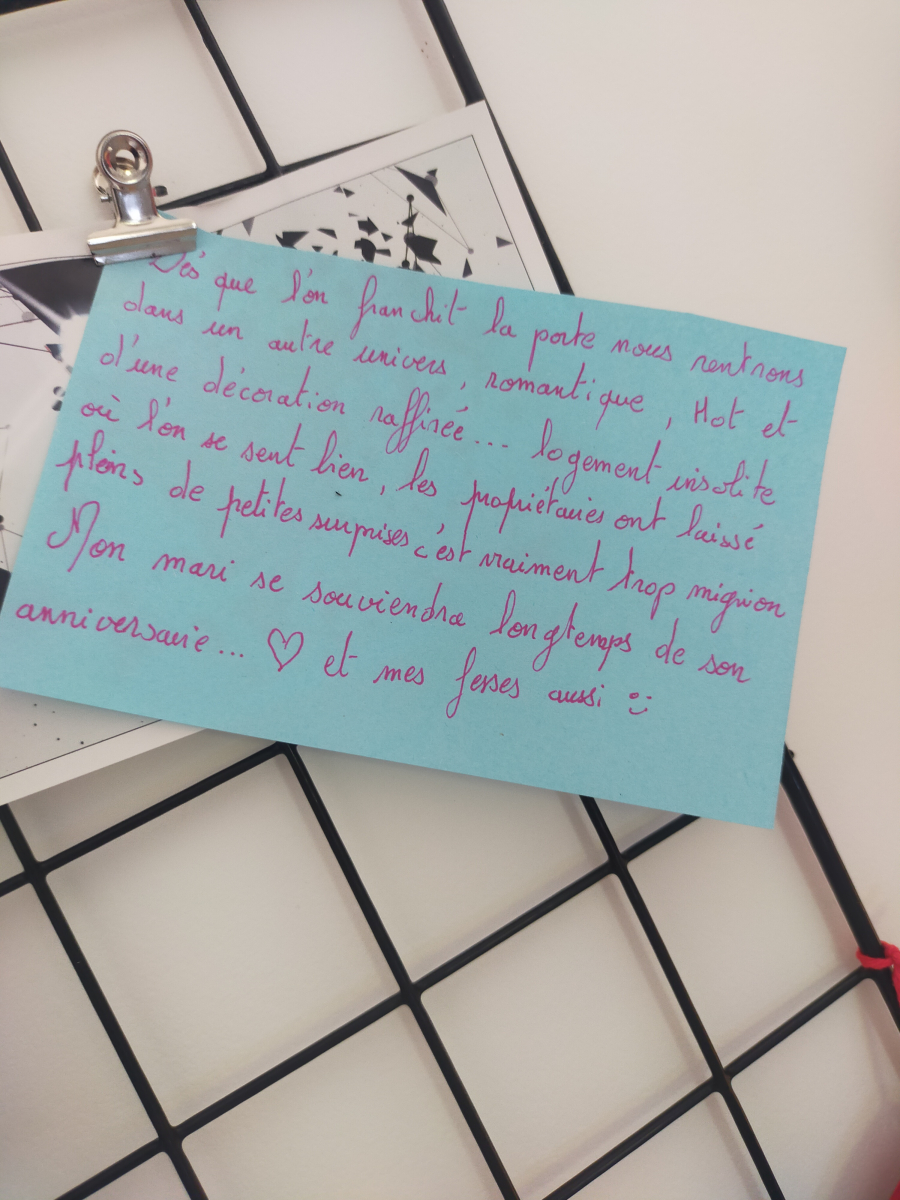 Dès que l'on franchit la porte nous rentrons
dans un autre univers, romantique, Hot et
d'une décoration raffinée... logement insolite
où l'on se sent bien, les propriétaires ont laissé
pleins de petites surprises c'est vraiment trop mignon
Mon mari se souviendra longtemps de son
anniversaire... ♡ et mes fesses aussi :)